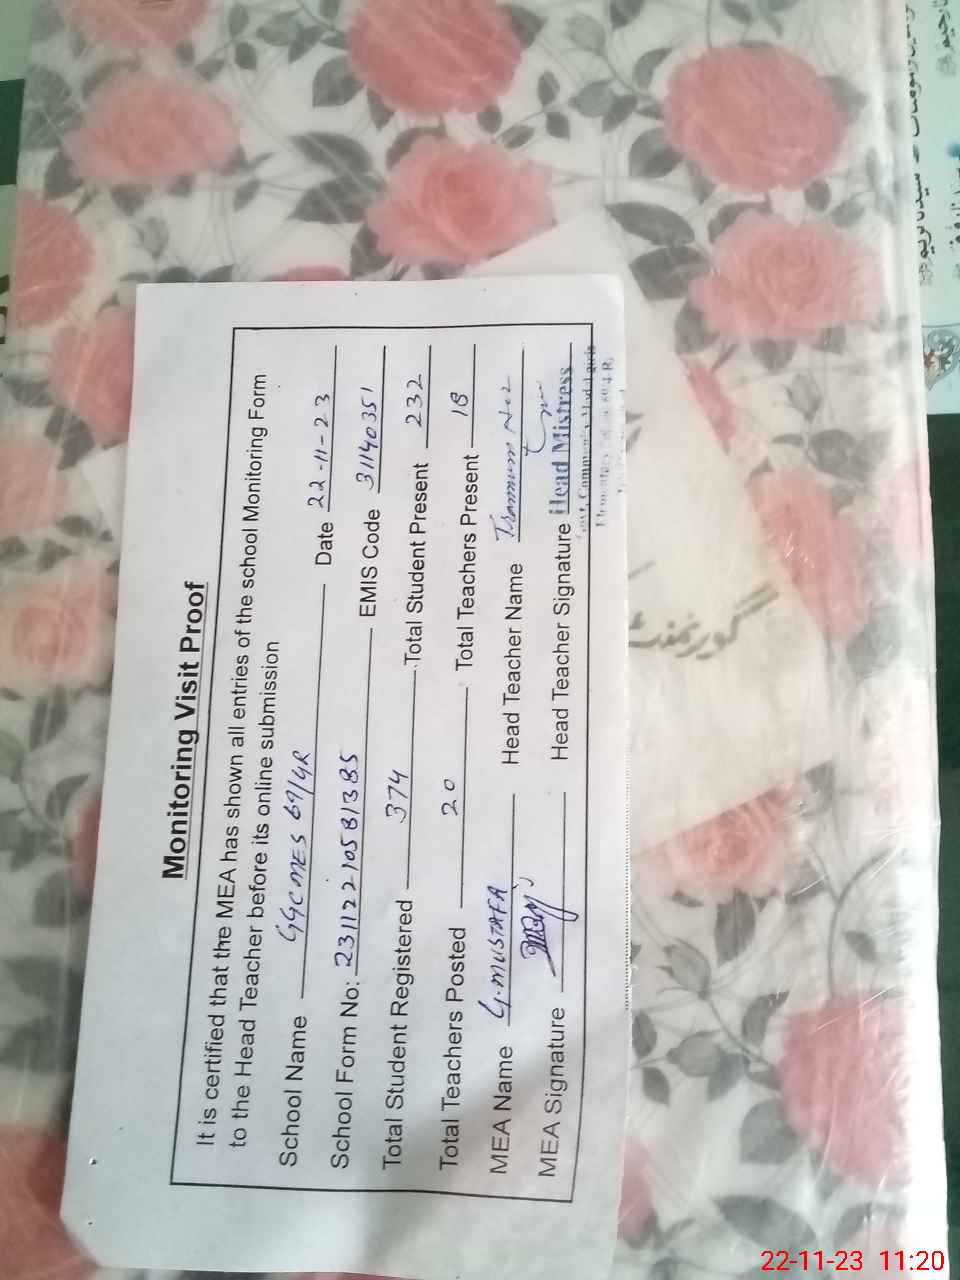 Monitoring Visit Proof
It is certified that the MEA has shown all entries of the school Monitoring Form
to the Head Teacher before its online submission
School Name GGCMES 69/4R Date 22-11-23
School Form No: 23112110581385 EMIS Code 31140351
Total Student Registered 374 Total Student Present 232
Total Teachers Posted 20 Total Teachers Present 18
MEA Name G.MUSTAFA Head Teacher Name
MEA Signature Head Teacher Signature Head Mistress
Govt. Community Model Girls
Elementary
گورنمنٹ
22-11-23 11:20